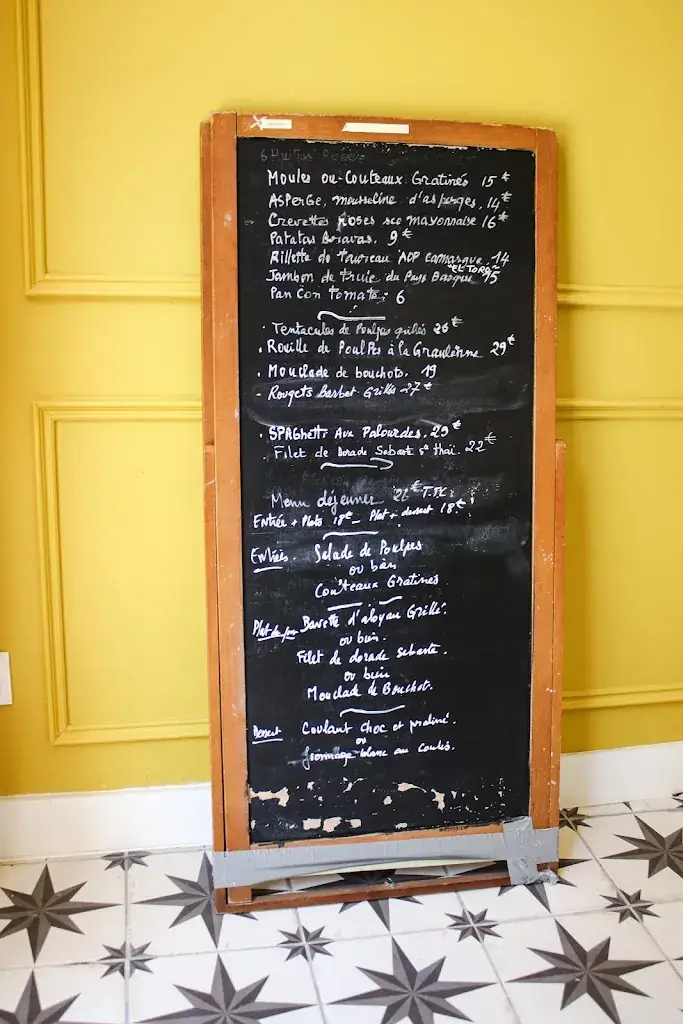 6 Huitres
Moules ou Couteaux Gratinés 15€
ASPerge, mousseline d'asperges. 14€
Crevettes Roses sce mayonnaise 16€
Patatas Bravas. 9€
Rillette de taureau AOP camargue. 14
"EL TORO"
Jambon de truie du Pays Basque 15
Pan Con Tomate. 6
. Tentacules de Poulpes grillés 26€
. Rouille de PoulPes à la Graulenne 29€
. Mouclade de bouchots. 19
- Rougets Barbet Grillés 27€
. SPAGhetti Aux Palourdes. 29€
. Filet de Dorade Sebaste thaï. 22€
Menu déjeuner 26€ T.T.C.
Entrée + Plats 18€ - Plat + dessert 18€.
Entrées. Salade de Poulpes
ou bien
Couteaux Gratinés
Plat du jour Bavette d'aloyau Grillé.
ou bien.
Filet de dorade sebaste.
ou bien
Mouclade de Bouchot.
Dessert Coulant choc et praliné.
ou
fromage blanc au coulis.